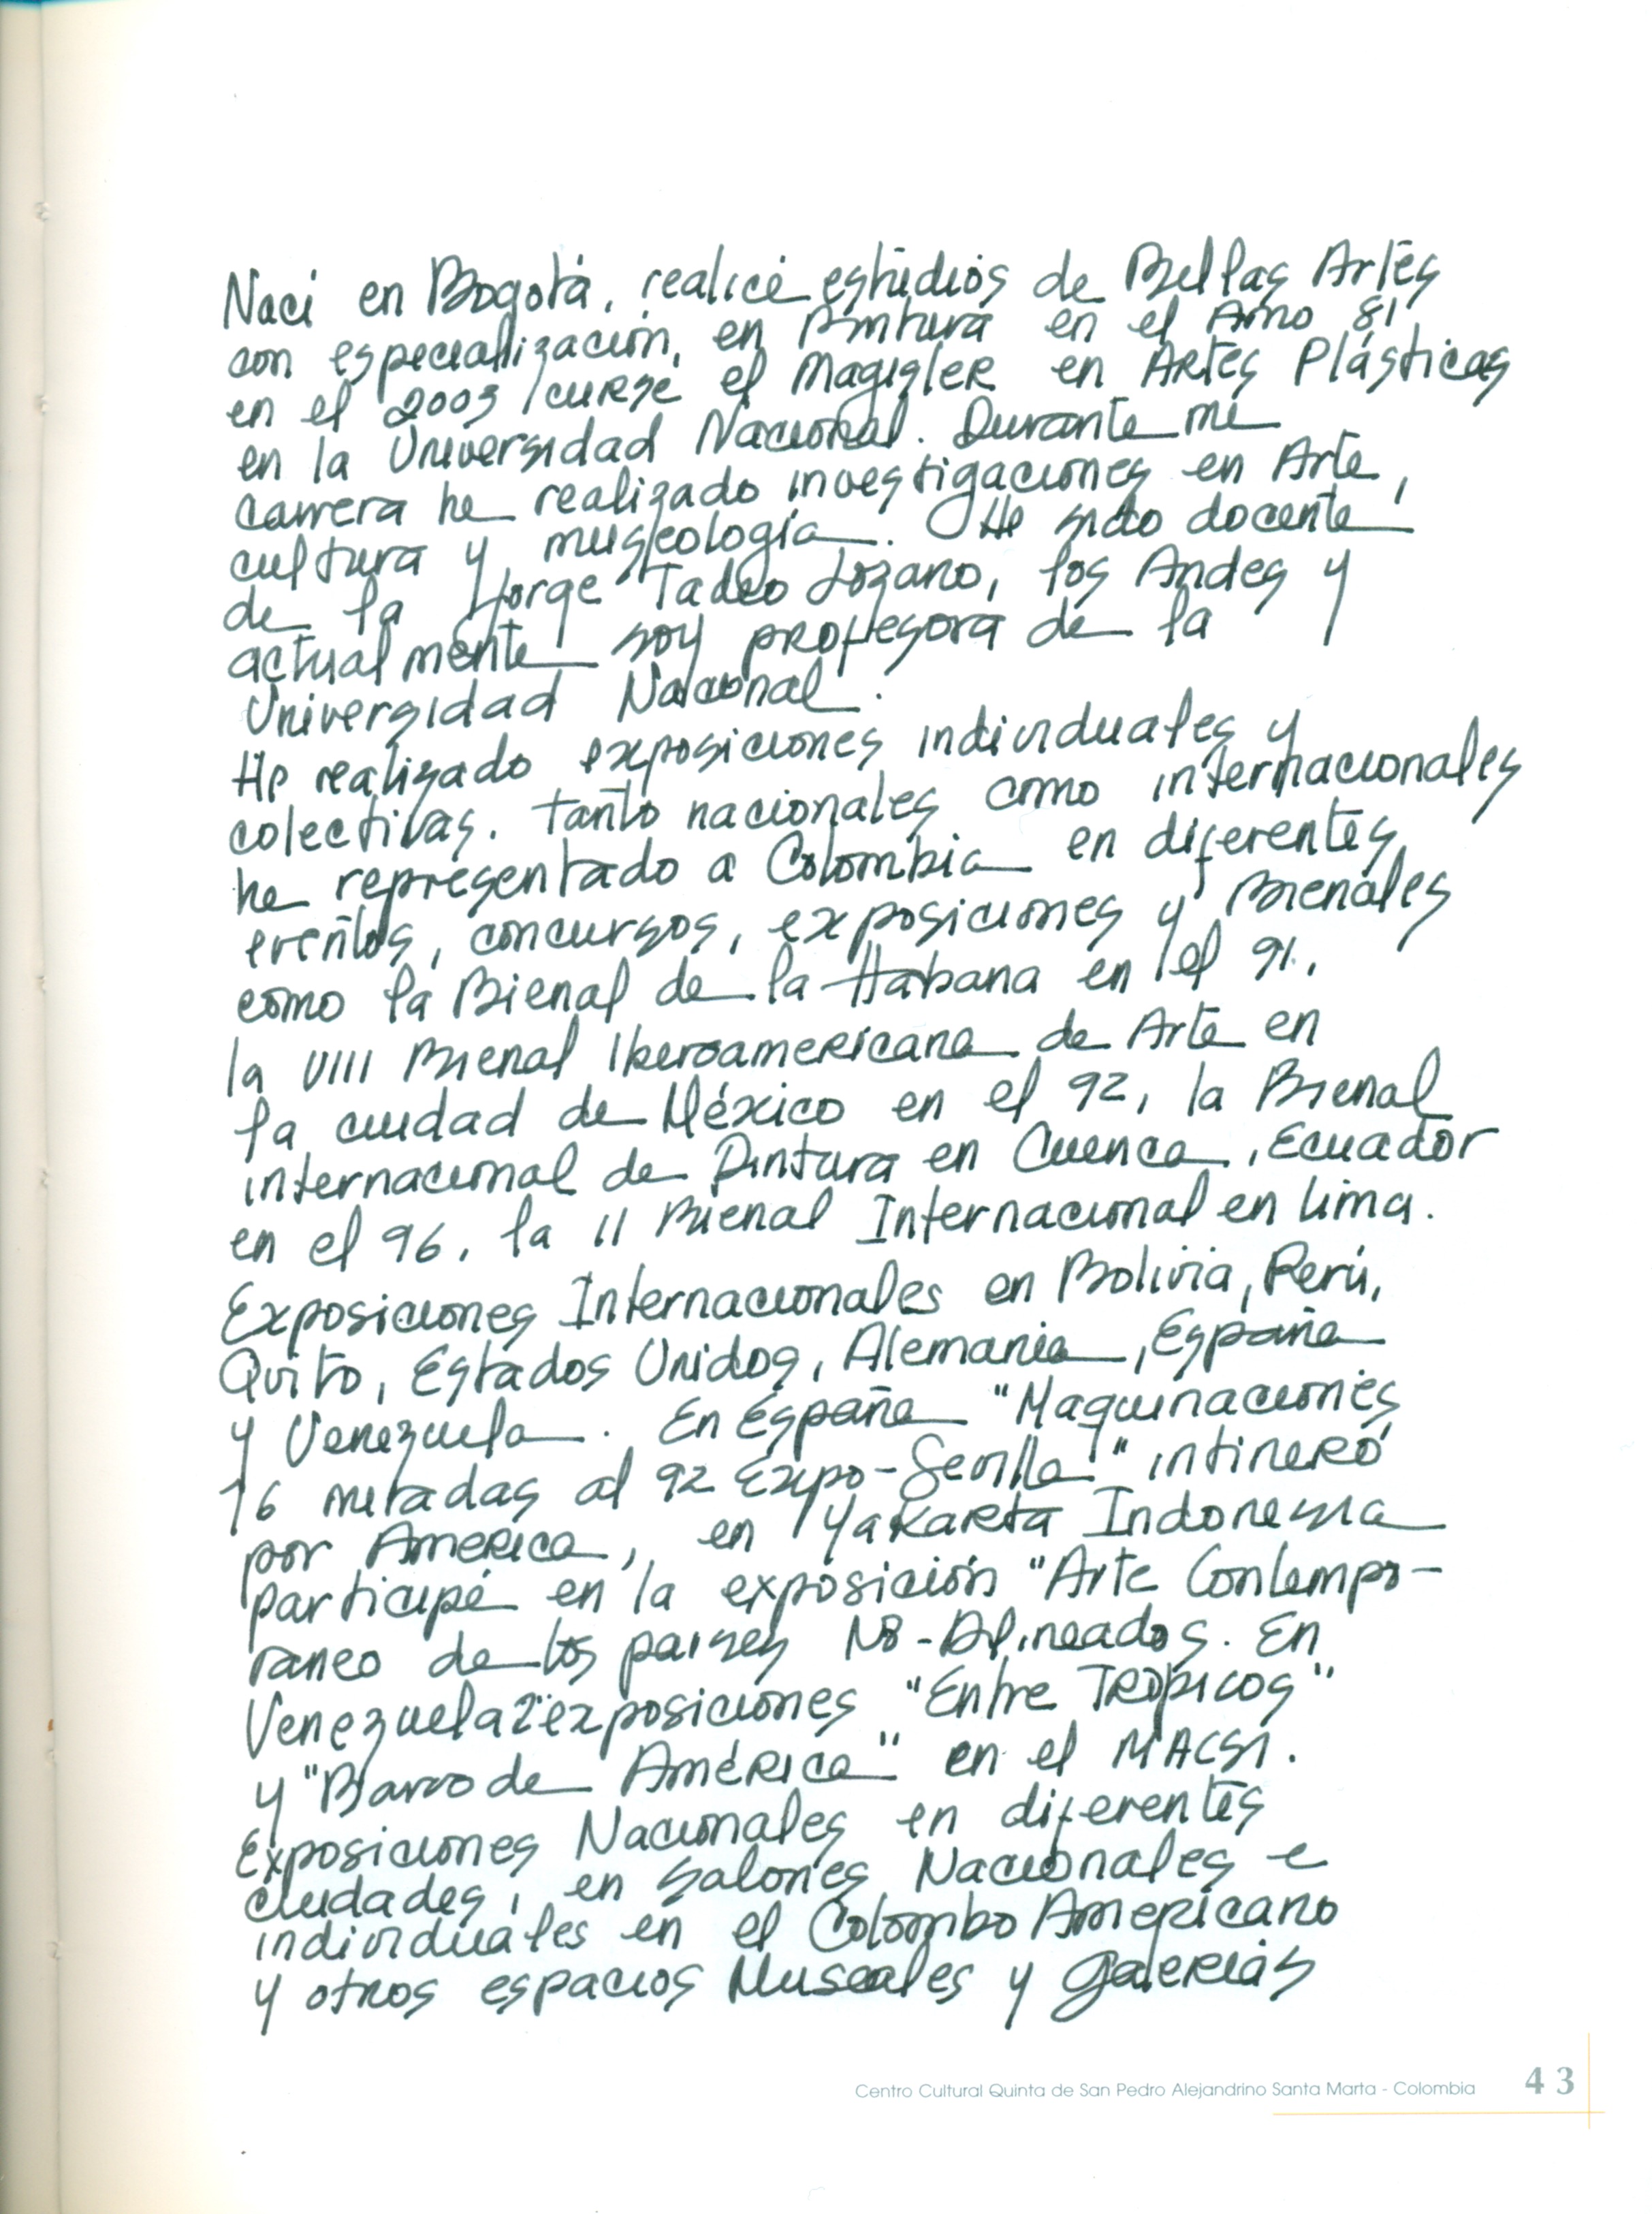 Naci en Bogotá, realicé estudios de Bellas Artes
con especialización, en Pintura en el Año 81
en el 2003 cursé el Magister en Artes Plásticas
en la Universidad Nacional. Durante mi
carrera he realizado investigaciones en Arte,
cultura y museología. He sido docente
de la Jorge Tadeo Lozano, los Andes y
actualmente soy profesora de la
Universidad Nacional.
He realizado exposiciones individuales y
colectivas. tanto nacionales como internacionales
he representado a Colombia en diferentes
eventos, concursos, exposiciones y Bienales
como la Bienal de la Habana en el 91.
la VIII Bienal Iberoamericana de Arte en
la ciudad de México en el 92, la Bienal
internacional de Pintura en Cuenca, Ecuador
en el 96, la II Bienal Internacional en Lima.
Exposiciones Internacionales en Bolivia, Perú,
Quito, Estados Unidos, Alemania, España
y Venezuela. En España "Maquinaciones
16 miradas al 92 Expo-Sevilla" intineró
por America, en Yakarta Indonesia
participé en la exposición "Arte Contempo-
raneo de los paises No-Alineados. En
Venezuela 2 exposiciones "Entre Trópicos"
y "Barroco de América" en el MACSI.
Exposiciones Nacionales en diferentes
ciudades, en Salones Nacionales e
individuales en el Colombo Americano
y otros espacios Museales y galerías
Centro Cultural Quinta de San Pedro Alejandrino Santa Marta - Colombia 43